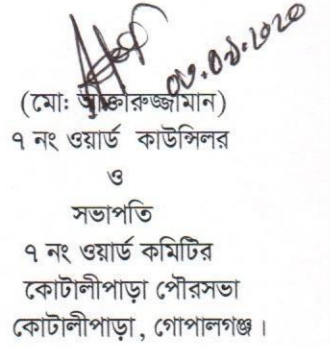 ০৩.০৯.২০২০
(মো: আক্তারুজ্জামান)
৭ নং ওয়ার্ড কাউন্সিলর
ও
সভাপতি
৭ নং ওয়ার্ড কমিটির
কোটালীপাড়া পৌরসভা
কোটালীপাড়া, গোপালগঞ্জ।